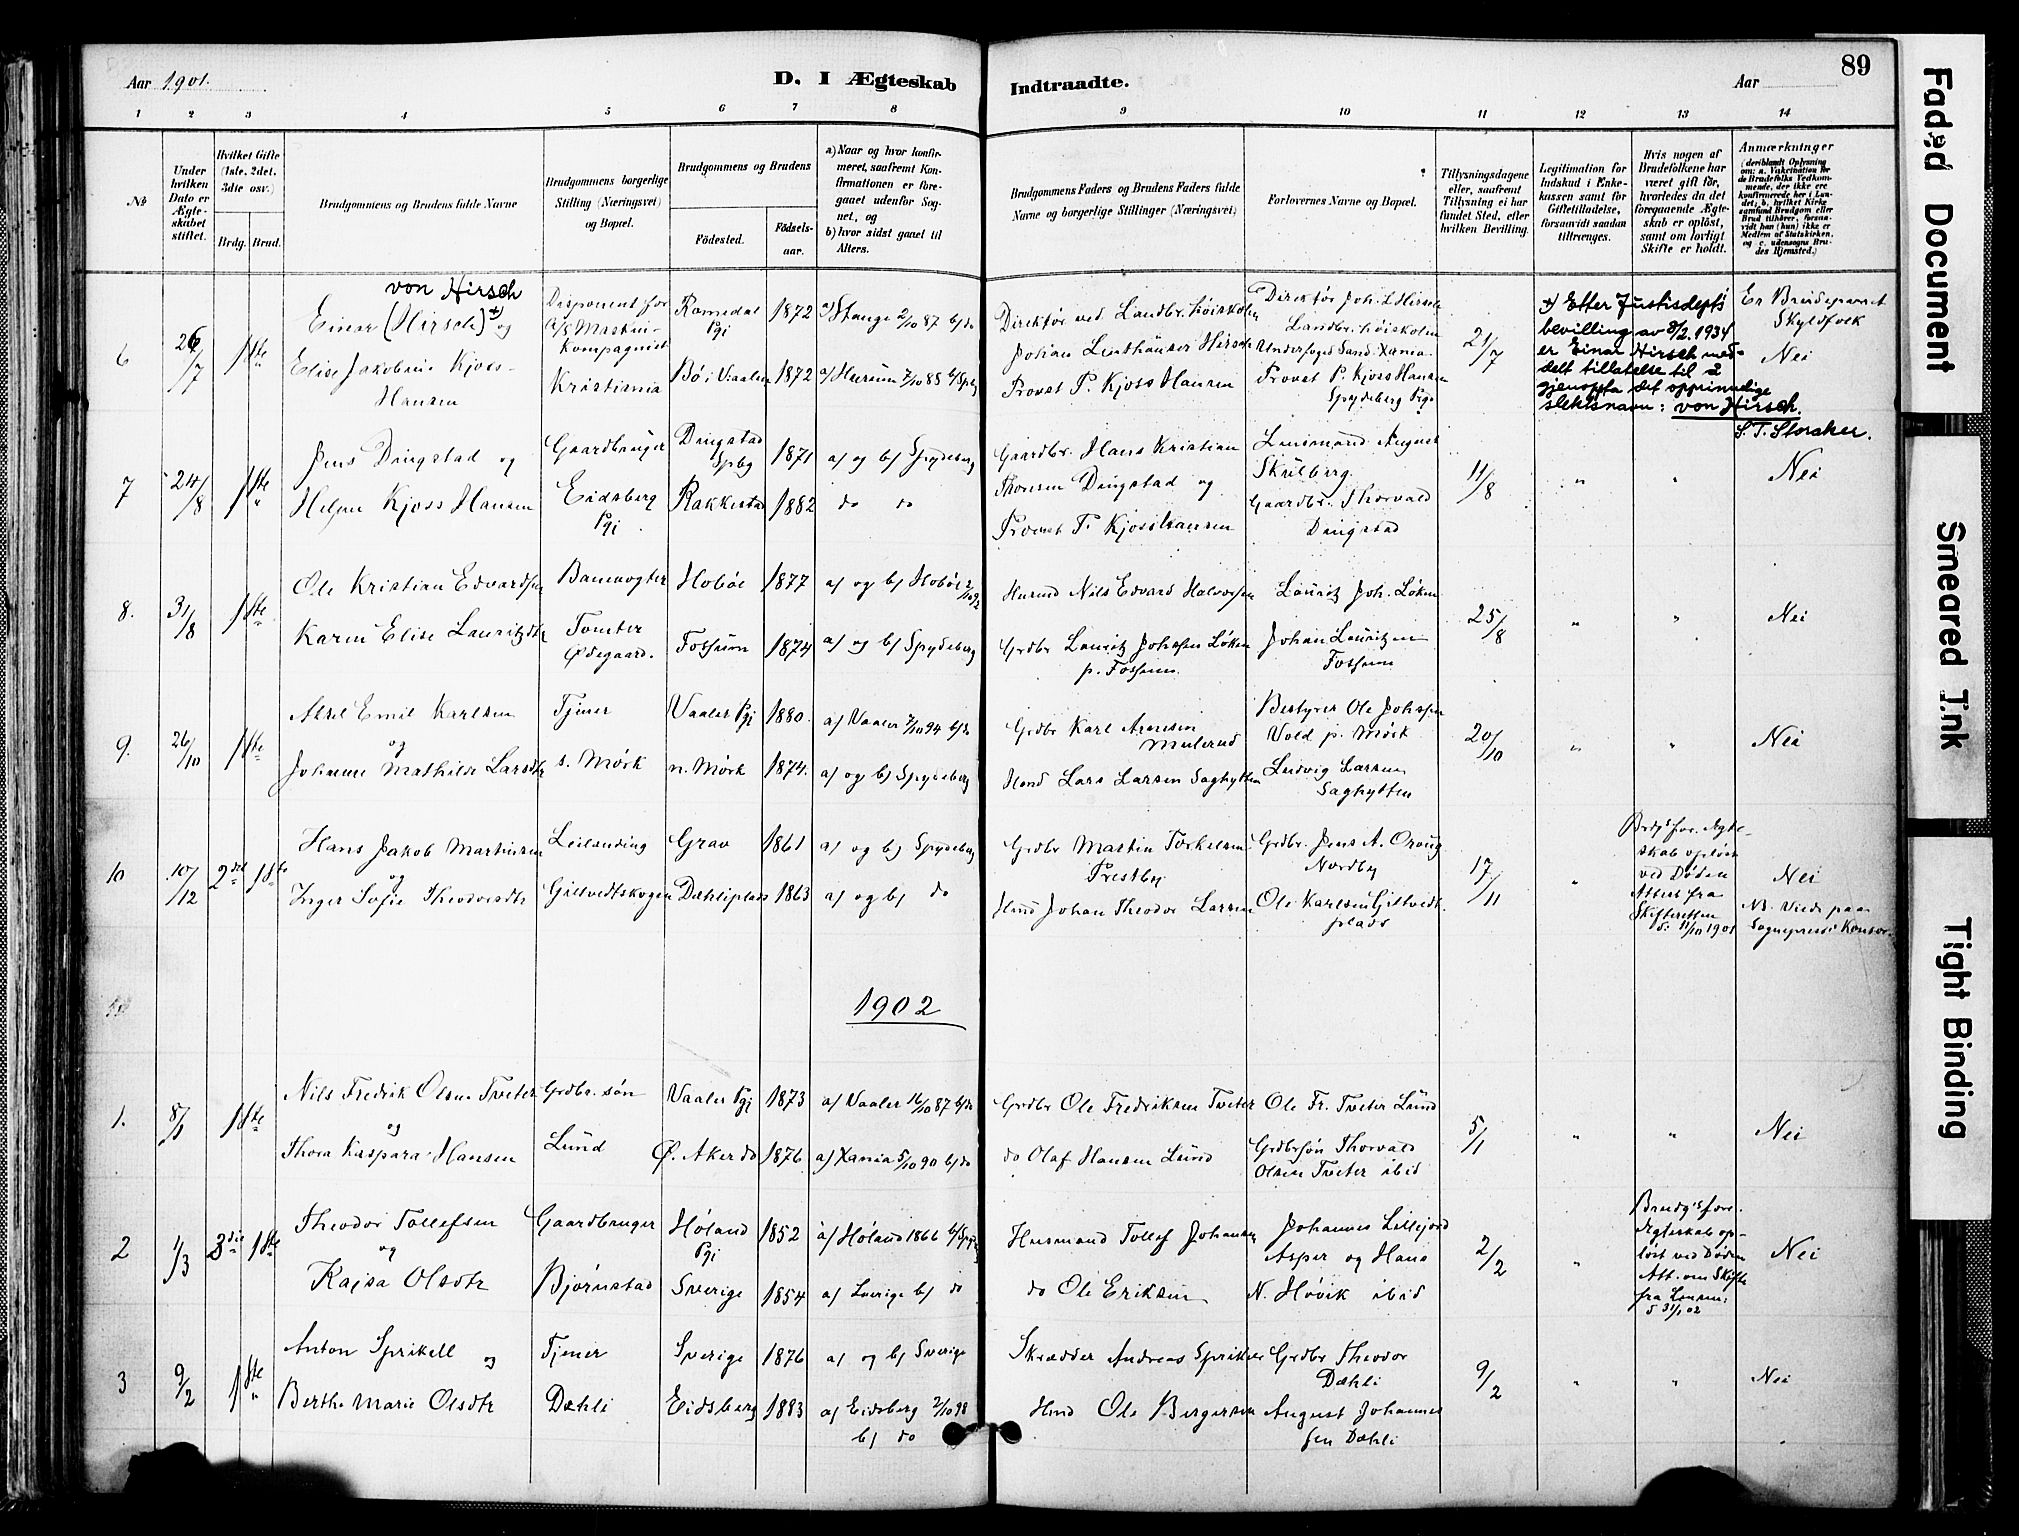 89
Aar 1901.
D. I Ægteskab Indtraadte.
Aar
1 2 3 4 5 6 7 8 9 10 11 12 13 14
№
Under
hvilken
Dato er
Ægte-
skabet
stiftet.
Hvilket Gifte
(1ste, 2det,
3die osv.)
Brdg. Brud.
Brudgommens og Brudens fulde Navne
Brudgommens borgerlige
Stilling (Næringsvei)
og Bopæl.
Brudgommens og Brudens
Fødested.
Fødsels-
aar.
a) Naar og hvor konfir-
meret, saafremt Kon-
firmationen er fore-
gaaet udenfor Sog-
net, og
b) hvor sidst gaaet til
Alters.
Brudgommens Faders og Brudens Faders fulde
Navne og borgerlige Stillinger (Næringsvei)
Forlovernes Navne og Bopæl.
Tillysningsdagene
eller, saafremt
Tillysning ei har
fundet Sted, efter
hvilken Bevilling.
Legitimation for
Indskud i Enke-
kassen samt for
Giftetilladelse,
forsaavidt saadan
tiltrænges.
Hvis nogen af
Brudefolkene har
været gift før,
hvorledes da det
foregaaende Ægte-
skab er opløst,
samt om lovligt
Skifte er holdt.
Anmærkninger
(deriblandt Oplysning
om: a. Vakcination for
de Brudefolks Vedkom-
mende, der ikke ere
konfirmerede her i Lan-
det; b. hvilket Kirke-
samfund Brudgom eller
Brud tilhører, forsaa-
vidt han (hun) ikke er
Medlem af Statskirken,
og c. udensogns Bru-
des Hjemsted.)
6
26/7
1ste
von Hirsch
Einar (Hirsch) x) og
Elise Jakobine Kjoss-
Hansen
Disponent for
A/S Maskin-
kompagniet
Kristiania
Romsdal
Pgj
1872
a) Stange 2/10 87 b) do
Bø i Vaaler
1872
a) Hurum 7/10 85 b) Spbg
Direktør ved Landbr. høiskolen
Johan Lindhauser Hirsch
Provst P. Kjoss Hansen
Direktør Joh. L Hirsch
Landbr. høiskolen
Underfoged Sand. Xania.
Provst P. Kjoss Hansen
Spydeberg Pgd
21/7
x) Efter Justisdept's
bevilling av 8/2. 1934
er Einar Hirsch med-
delt tillatelse til å
gjenoppta det opprinnelige
slektsnavn: von Hirsch.
S. T. Storaker.
Er Brudeparret
Skyldfolk
Nei
7
24/8
1ste
"
Jens Dingstad og
Helga Kjoss Hansen
Gaardbruger
Eidsberg
Pgj
Dingstad
Spbg
1871
a) og b) Spydeberg
Rakkestad
1882
do do
Gaardbr. Hans Kristian
Thorsen Dingstad og
Provst P. Kjoss Hansen
Lensmand August
Skulberg.
Gaardbr. Thorvald
Dingstad
11/8
" "
Nei
8.
31/8
1ste
Ole Kristian Edvardsen
Karen Elise Lauritzdtr
Banevogter
Tomter
Ødegaard.
Hobøl
1877
a) og b) Hobøl 2/10 92
Fossum
1874
a) og b) Spydeberg
Husmd Nils Edvard Halvorsen
Grdbr Lauritz Johssen Løken
p. Fossum.
Lauritz Joh. Løken
Johan Lauritzen
Fossum
25/8
" "
Nei
9.
26/10
1ste
Aksel Emil Karlsen
og
Johanne Mathilde Larsdtr
Tjener
s. Mørk
Vaaler Pgj
1880.
a) Vaaler 7/10 94 b) do
n. Mørk
1874.
a) og b) Spydeberg
Grdbr Karl Arnesen
Mulerud
Hmd Lars Larsen Saghytten
Bestyrer Ole Johssen
Vold p. Mørk
Ludvig Larsen
Saghytten
20/10
" "
Nei
10
10/12
2det 1ste
Hans Jakob Martinsen
og
Inger Sofie Theodorsdtr
Leilending
Gillvedtskogen
Grav
1861
a) og b) Spydeberg
Dæhliplads
1863
a) og b) do
Grdbr Martin Torkelsen
Prestby
Hmd Johan Theodor Larsen
Grdbr. Jens A. Oraug
Nordby
Ole Karlsen Gillvedt-
plads
17/11
"
Brdgs for. Ægte-
skab opløst
ved Døden
Attest fra
Skifteretten
d: 11/10 1901
Nei
NB. Viede paa
Sognepres: Kontor.
1902
1.
8/1
1ste
Nils Fredrik Olsen Tveter
og
Thora Kaspara Hansen
Grdbr. søn
Lund
Vaaler Pgj
1873
a) Vaaler 16/10 87 b) do
Ø. Aker do
1876
a) Xania 5/10 90 b) do
Grdbr Ole Fredriksen Tveter
do Olaf Hansen Lund
Ole Fr. Tveter Lund
Grdbrsøn Thorvald
Olsen Tveter ibid
5/1
" "
Nei
2
1/3
3die 1ste
Theodor Tollefsen
og
Kajsa Olsdtr
Gaardbruger
Bjørnstad
Høland
Pgj
1852
a) Høland 1866 b) Spbg
Sverige
1854
a) Sverige b) do
Husmand Tollef Johansen
do Ole Eriksen
Johannes Lillejord
Asper og Hans
N. Høvik ibid
2/2
"
Brudg's fore.
Ægteskab op-
løst ved Døden
Att. om Skifte
fra Lensm:
d 31/1 02
Nei
3
9/2
1ste
"
Anton Sprikell og
Berthe Marie Olsdtr
Tjener
Dæhli
Sverige
1876
a) og b) Sverige
Eidsberg
1883
a) Eidsberg 2/10 98
b) do
Skrædder Andreas Sprikell
Hmd Ole Bergersen
Grdbr Theodor
Dæhli
August Johannes
sen Dæhli
9/2
" "
Nei
Faded Document
Smeared Ink
Tight Binding